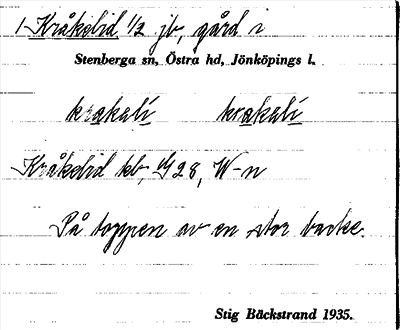 1 Kråkelid 1/2 jb, gård i
Stenberga sn, Östra hd, Jönköpings l.
krakalí krakalí
Kråkelid kb, 28, W-n
På toppen av en stor backe.
Stig Bäckstrand 1935.